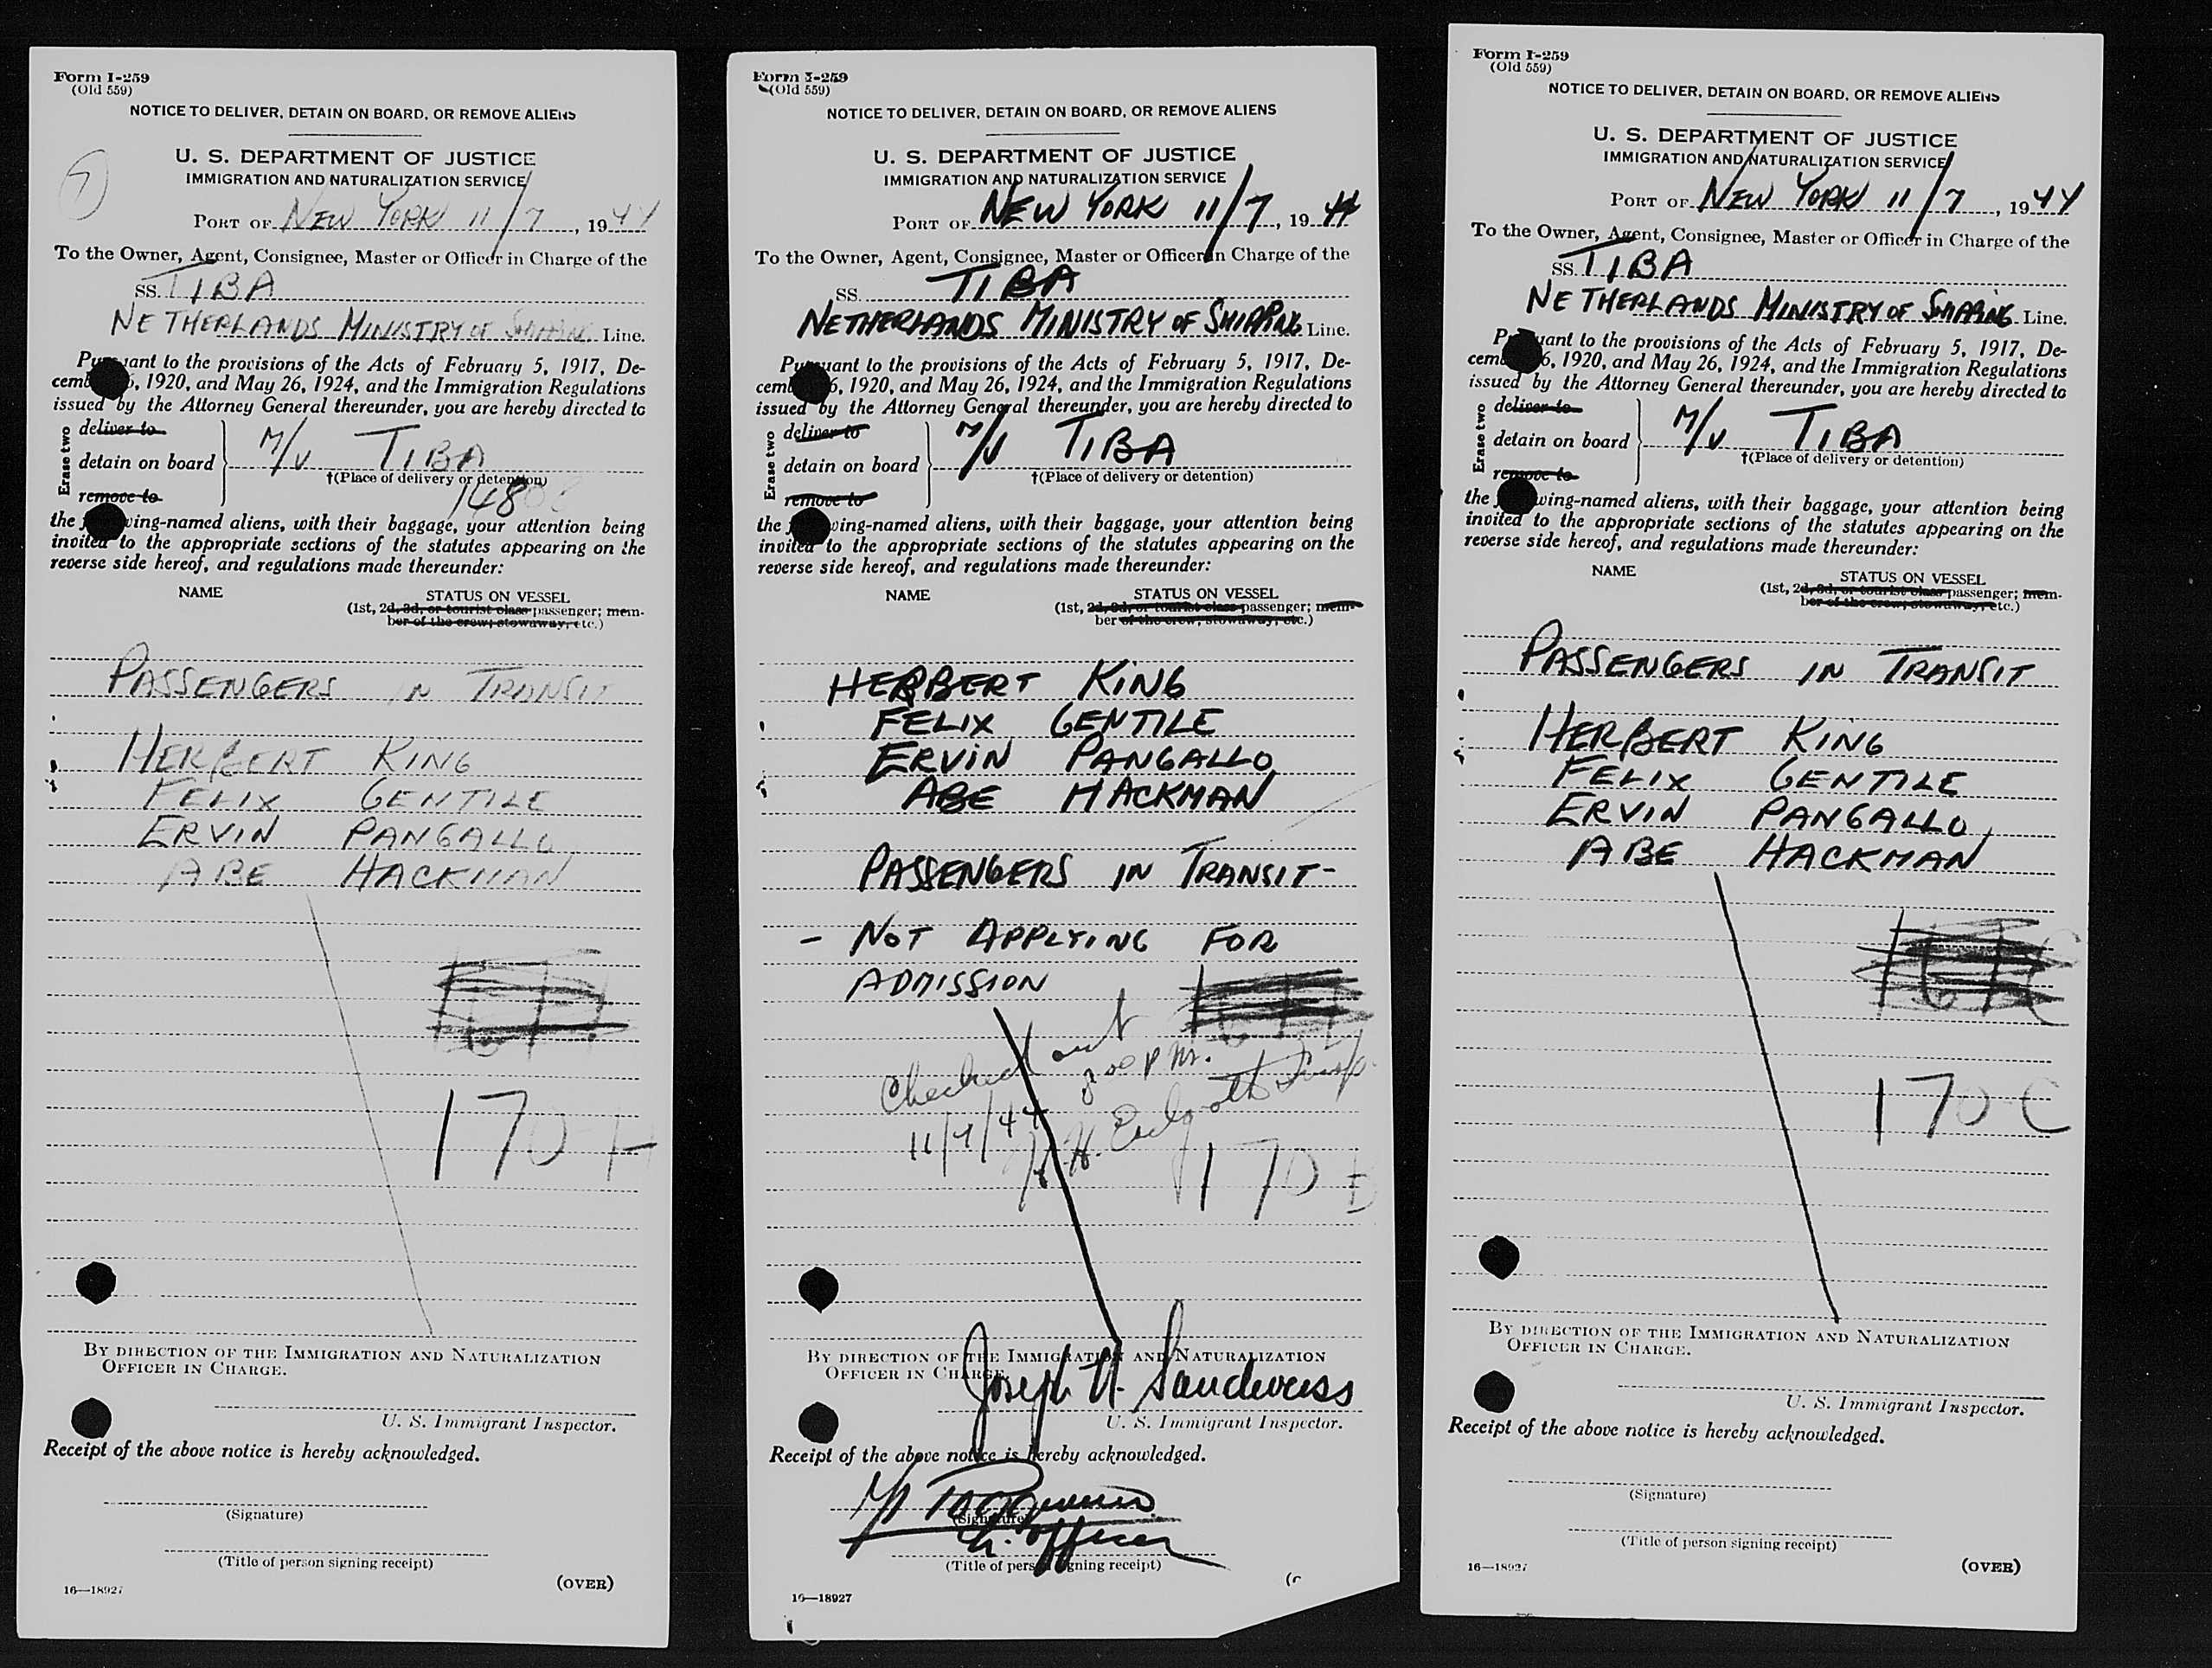 Form I-259
(Old 559)
NOTICE TO DELIVER, DETAIN ON BOARD, OR REMOVE ALIENS
U. S. DEPARTMENT OF JUSTICE
IMMIGRATION AND NATURALIZATION SERVICE
7
PORT OF NEW YORK 11/7, 1944
To the Owner, Agent, Consignee, Master or Officer in Charge of the
SS. TIBA
NETHERLANDS MINISTRY OF SHIPPING Line.
Pursuant to the provisions of the Acts of February 5, 1917, De-
cember 6, 1920, and May 26, 1924, and the Immigration Regulations
issued by the Attorney General thereunder, you are hereby directed to
Erase two
deliver to
detain on board M/V TIBA
†(Place of delivery or detention)
remove to
148
the following-named aliens, with their baggage, your attention being
invited to the appropriate sections of the statutes appearing on the
reverse side hereof, and regulations made thereunder:
NAME STATUS ON VESSEL
(1st, 2d, 3d, or tourist class passenger; mem-
ber of the crew; stowaway, etc.)
PASSENGERS IN TRANSIT
HERBERT KING
FELIX GENTILE
ERVIN PANGALLO
ABE HACKMAN
170
BY DIRECTION OF THE IMMIGRATION AND NATURALIZATION
OFFICER IN CHARGE.
U. S. Immigrant Inspector.
Receipt of the above notice is hereby acknowledged.
(Signature)
(Title of person signing receipt)
16—18927
(OVER)
Form I-259
(Old 559)
NOTICE TO DELIVER, DETAIN ON BOARD, OR REMOVE ALIENS
U. S. DEPARTMENT OF JUSTICE
IMMIGRATION AND NATURALIZATION SERVICE
PORT OF NEW YORK 11/7, 1944
To the Owner, Agent, Consignee, Master or Officer in Charge of the
SS. TIBA
NETHERLANDS MINISTRY OF SHIPPING Line.
Pursuant to the provisions of the Acts of February 5, 1917, De-
cember 6, 1920, and May 26, 1924, and the Immigration Regulations
issued by the Attorney General thereunder, you are hereby directed to
Erase two
deliver to
detain on board M/V TIBA
†(Place of delivery or detention)
remove to
the following-named aliens, with their baggage, your attention being
invited to the appropriate sections of the statutes appearing on the
reverse side hereof, and regulations made thereunder:
NAME STATUS ON VESSEL
(1st, 2d, 3d, or tourist class passenger; mem-
ber of the crew; stowaway, etc.)
HERBERT KING
FELIX GENTILE
ERVIN PANGALLO
ABE HACKMAN
PASSENGERS IN TRANSIT-
- NOT APPLYING FOR
ADMISSION
Checked out
PM.
11/7/44
170
BY DIRECTION OF THE IMMIGRATION AND NATURALIZATION
OFFICER IN CHARGE.
Joseph H. Sandweiss
U. S. Immigrant Inspector.
Receipt of the above notice is hereby acknowledged.
(Signature)
Officer
(Title of person signing receipt)
16—18927
Form I-259
(Old 559)
NOTICE TO DELIVER, DETAIN ON BOARD, OR REMOVE ALIENS
U. S. DEPARTMENT OF JUSTICE
IMMIGRATION AND NATURALIZATION SERVICE
PORT OF NEW YORK 11/7, 1944
To the Owner, Agent, Consignee, Master or Officer in Charge of the
SS. TIBA
NETHERLANDS MINISTRY OF SHIPPING Line.
Pursuant to the provisions of the Acts of February 5, 1917, De-
cember 6, 1920, and May 26, 1924, and the Immigration Regulations
issued by the Attorney General thereunder, you are hereby directed to
Erase two
deliver to
detain on board M/V TIBA
†(Place of delivery or detention)
remove to
the following-named aliens, with their baggage, your attention being
invited to the appropriate sections of the statutes appearing on the
reverse side hereof, and regulations made thereunder:
NAME STATUS ON VESSEL
(1st, 2d, 3d, or tourist class passenger; mem-
ber of the crew; stowaway, etc.)
PASSENGERS IN TRANSIT
HERBERT KING
FELIX GENTILE
ERVIN PANGALLO
ABE HACKMAN
170 C
BY DIRECTION OF THE IMMIGRATION AND NATURALIZATION
OFFICER IN CHARGE.
U. S. Immigrant Inspector.
Receipt of the above notice is hereby acknowledged.
(Signature)
(Title of person signing receipt)
16—18927
(OVER)